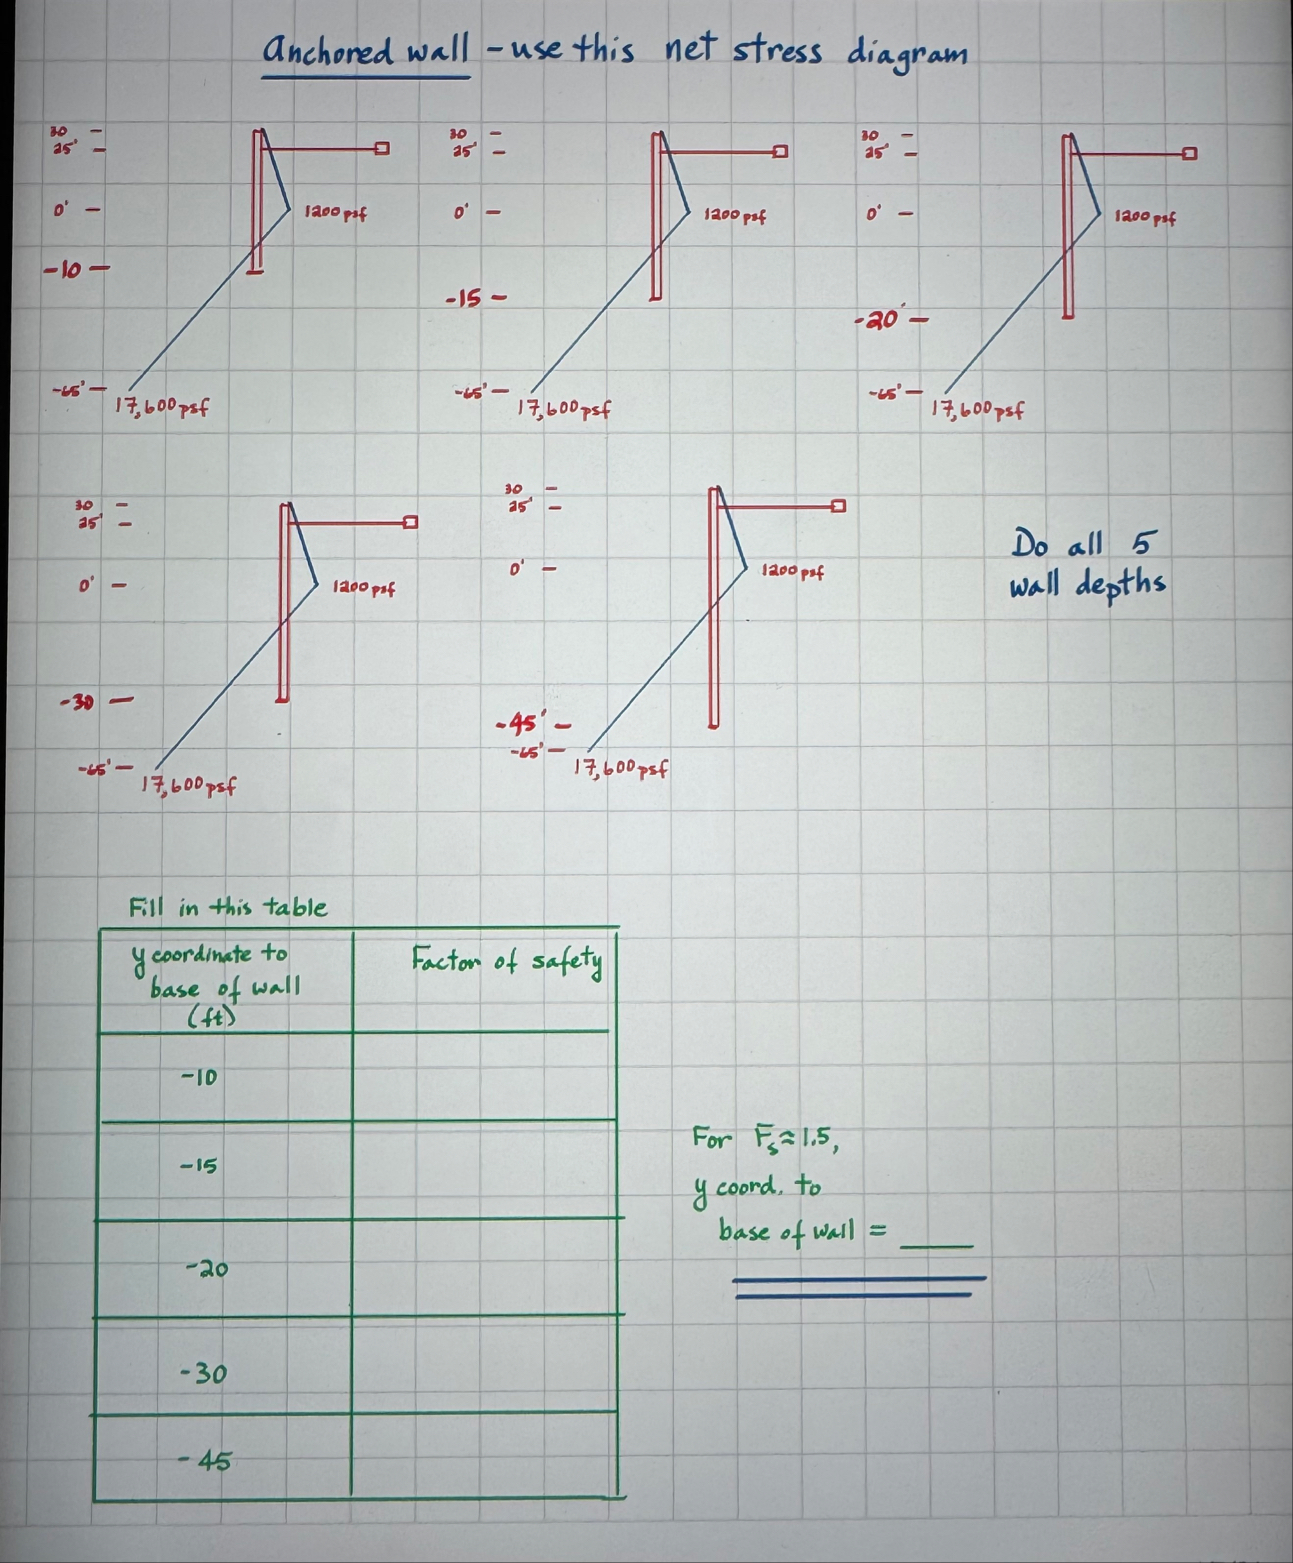 Anchored wall - use this net stress diagram
30
25'
0'
1200 psf
-10
-65'
17,600 psf
30
25'
0'
1200 psf
-15
-65'
17,600 psf
30
25'
0'
1200 psf
-20'
-65'
17,600 psf
30
25'
0'
1200 psf
-30
-65'
17,600 psf
30
25'
0'
1200 psf
-45'
-65'
17,600 psf
Do all 5
wall depths
Fill in this table
y coordinate to
base of wall
(ft)
Factor of safety
-10
-15
-20
-30
-45
For Fs ≈ 1.5,
y coord. to
base of wall = ____